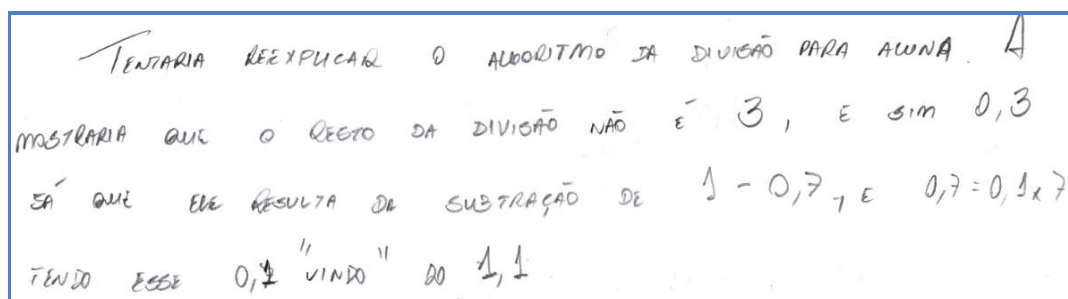 TENTARIA REEXPLICAR O ALGORITMO DA DIVISÃO PARA ALUNA. A
MOSTRARIA QUE O RESTO DA DIVISÃO NÃO É 3, E SIM 0,3
JÁ QUE ELE RESULTA DA SUBTRAÇÃO DE 1 - 0,7, E 0,7 = 0,1 x 7
TENDO ESSE 0,1 "VINDO" DO 1,1